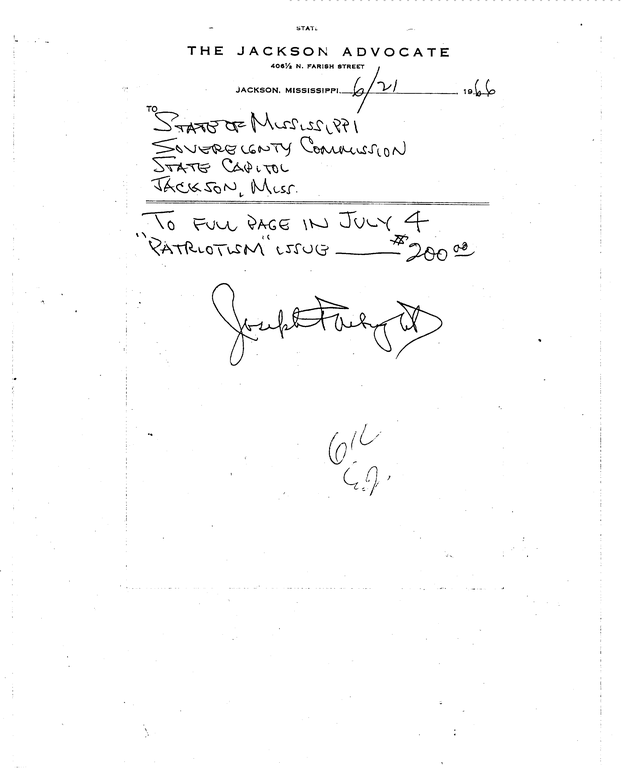 STAT.
THE JACKSON ADVOCATE
406½ N. FARISH STREET
JACKSON, MISSISSIPPI, 6/21 1966
TO
STATE OF MISSISSIPPI
SOVEREIGNTY COMMISSION
STATE CAPITOL
JACKSON, MISS.
TO FULL PAGE IN JULY 4
"PATRIOTISM" ISSUE $200.00
Joseph
E.J.